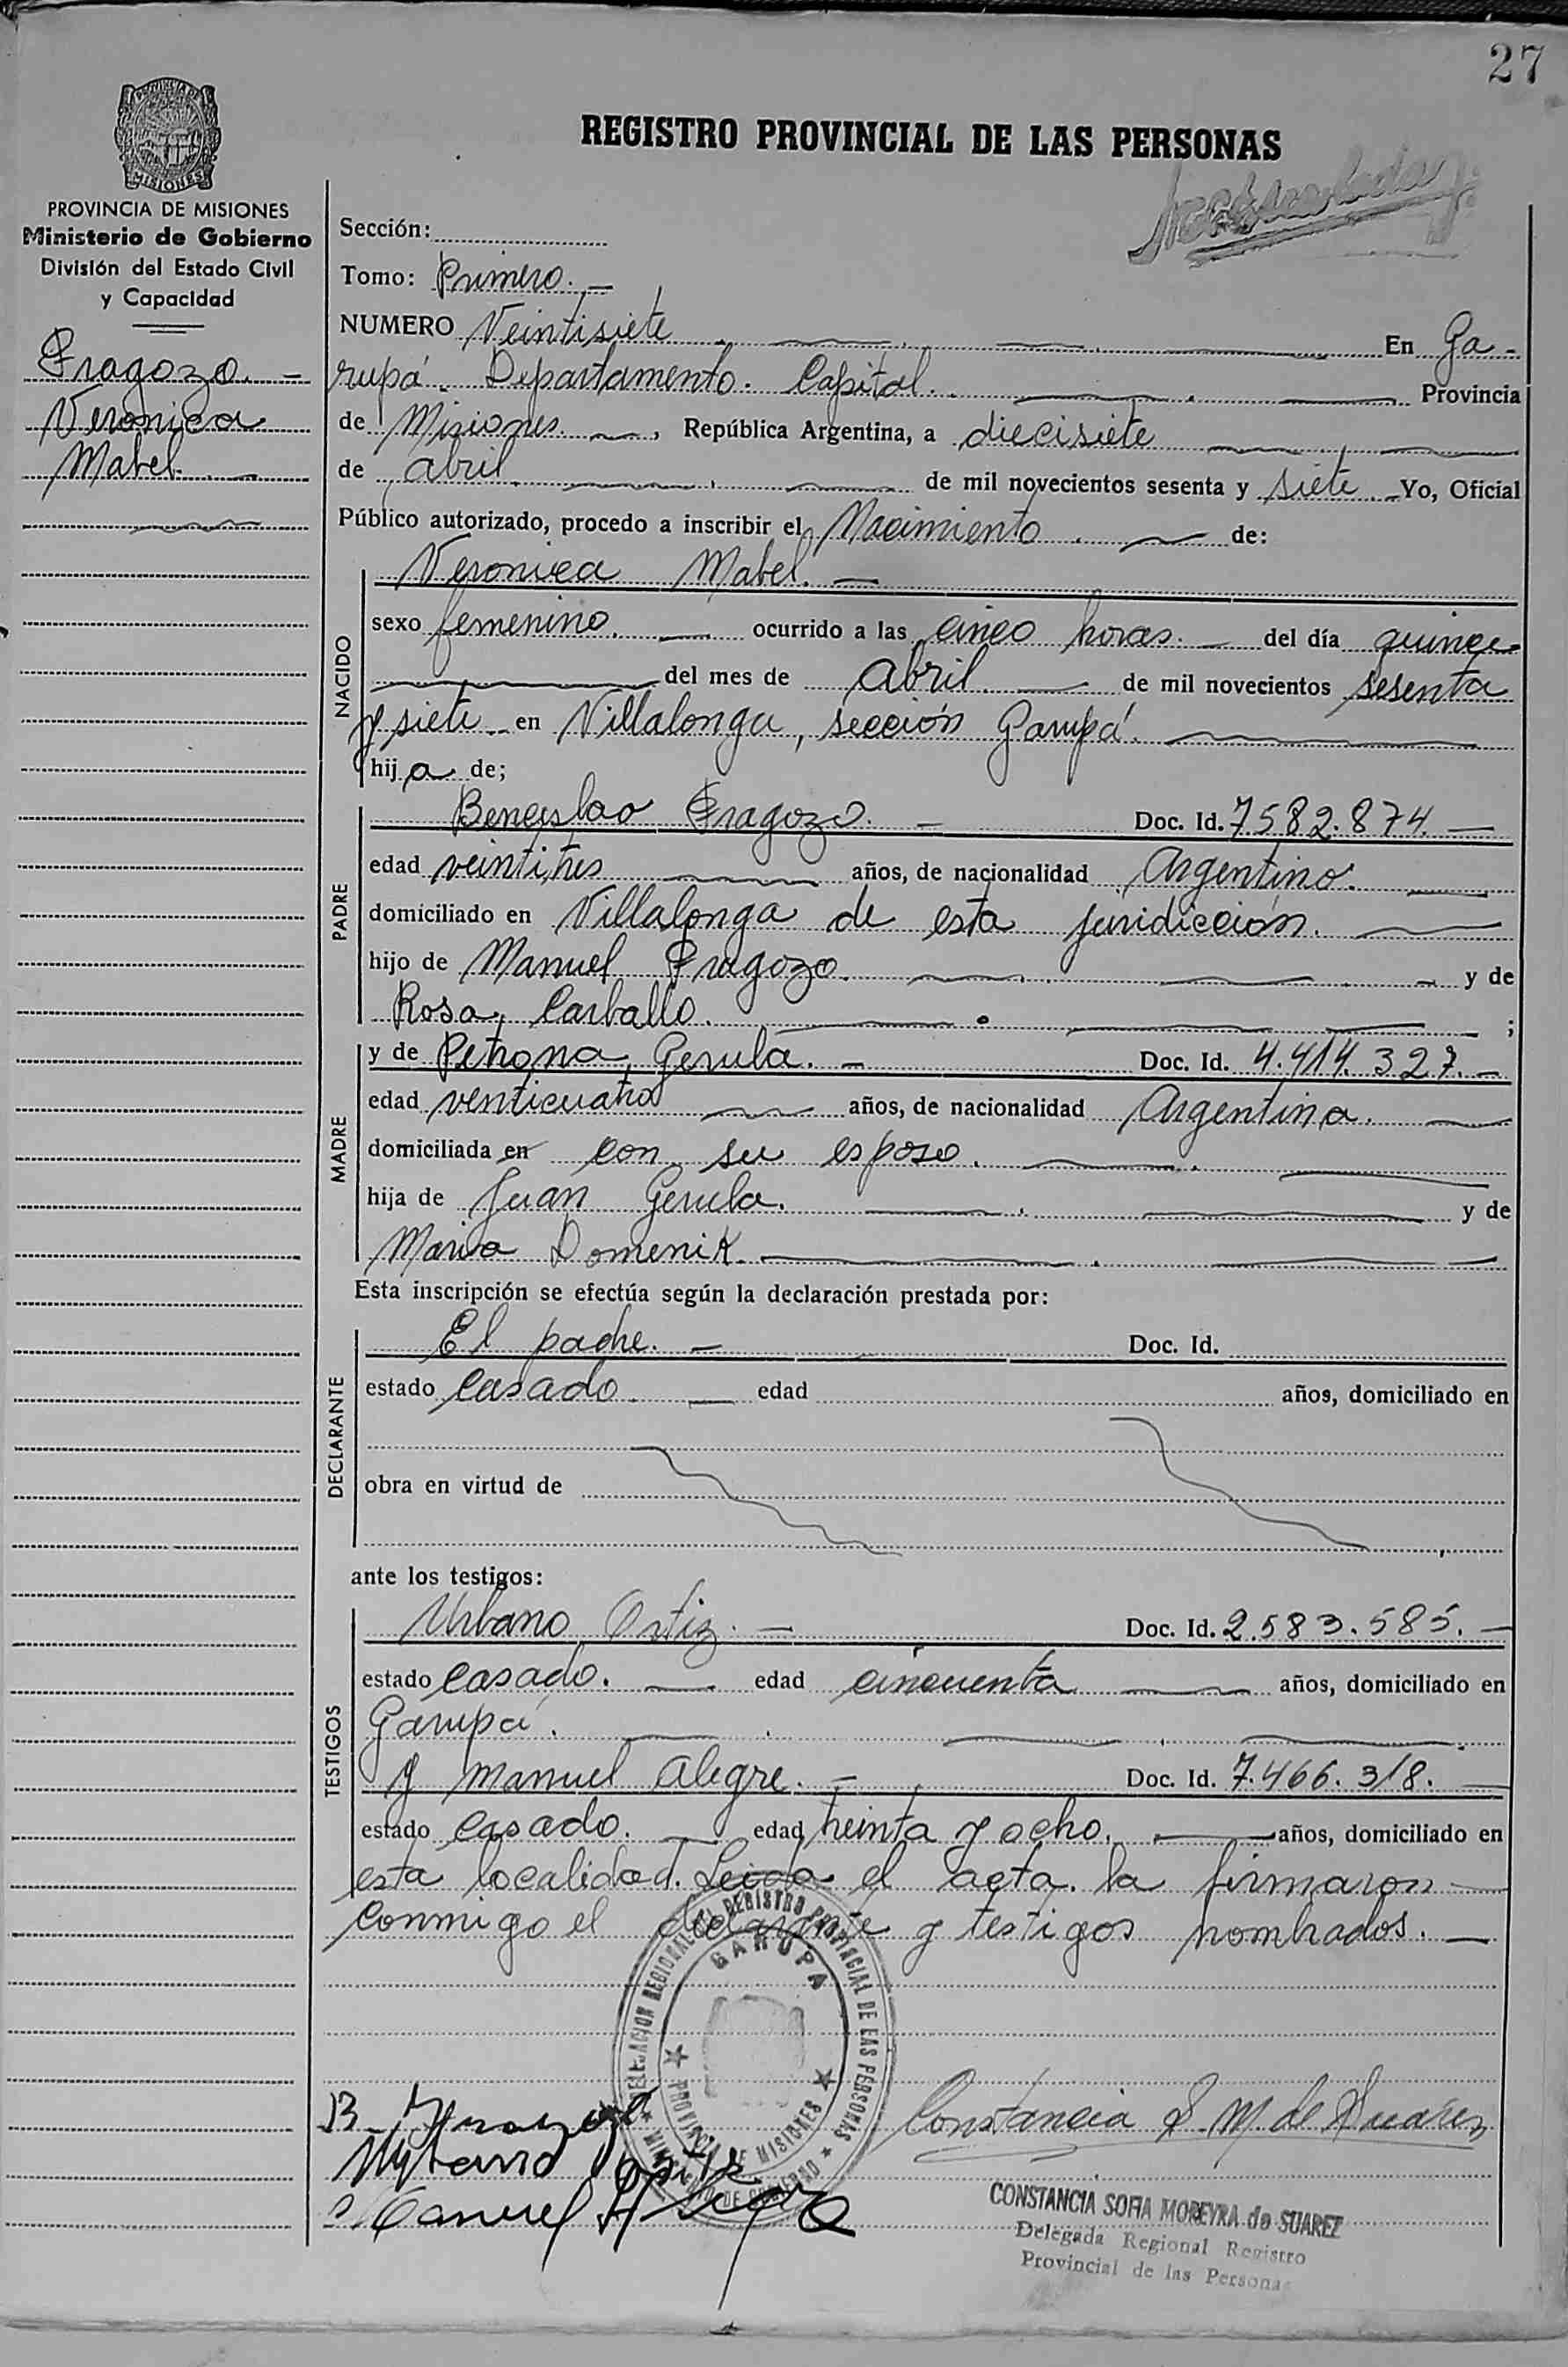 27
REGISTRO PROVINCIAL DE LAS PERSONAS
PROVINCIA DE MISIONES
Ministerio de Gobierno
División del Estado Civil
y Capacidad
Fragozo. —
Veronica
Mabel. —
Sección:
Tomo: Primero. —
NUMERO Veintisiete En Ga-
rupá. Departamento. Capital. Provincia
de Misiones. , República Argentina, a diecisiete
de abril de mil novecientos sesenta y siete Yo, Oficial
Público autorizado, procedo a inscribir el Nacimiento de:
NACIDO
Veronica Mabel. —
sexo femenino. — ocurrido a las cinco horas. — del día quince
del mes de abril — de mil novecientos sesenta
y siete en Villalonga, sección Garupá.
hija de;
PADRE
Benceslao Fragozo. — Doc. Id. 7582.874. —
edad veintitres años, de nacionalidad Argentino.
domiciliado en Villalonga de esta juridicción.
hijo de Manuel Fragozo. y de
Rosa Carballo. ;
MADRE
y de Petrona Gerula. — Doc. Id. 4.414.327. —
edad venticuatro años, de nacionalidad Argentina.
domiciliada en con su esposo.
hija de Juan Gerula. y de
Maria Domenik.
Esta inscripción se efectúa según la declaración prestada por:
DECLARANTE
El padre. — Doc. Id.
estado casado. — edad años, domiciliado en
obra en virtud de
ante los testigos:
TESTIGOS
Urbano Ortiz. — Doc. Id. 2.583.585. —
estado casado. — edad cincuenta años, domiciliado en
Garupá.
y Manuel Alegre. — Doc. Id. 7.466.318. —
estado casado. — edad treinta y ocho. — años, domiciliado en
esta localidad. Leida el acta. la firmaron
conmigo el declarante y testigos nombrados. —
DELEGACION REGIONAL DEL REGISTRO PROVINCIAL DE LAS PERSONAS
GARUPA
PROVINCIA DE MISIONES
MINISTERIO DE GOBIERNO
B. Fragozo
Urbano Ortiz
Manuel Alegre
Constancia S. M. de Suarez
CONSTANCIA SOFIA MOREYRA de SUAREZ
Delegada Regional Registro
Provincial de las Personas